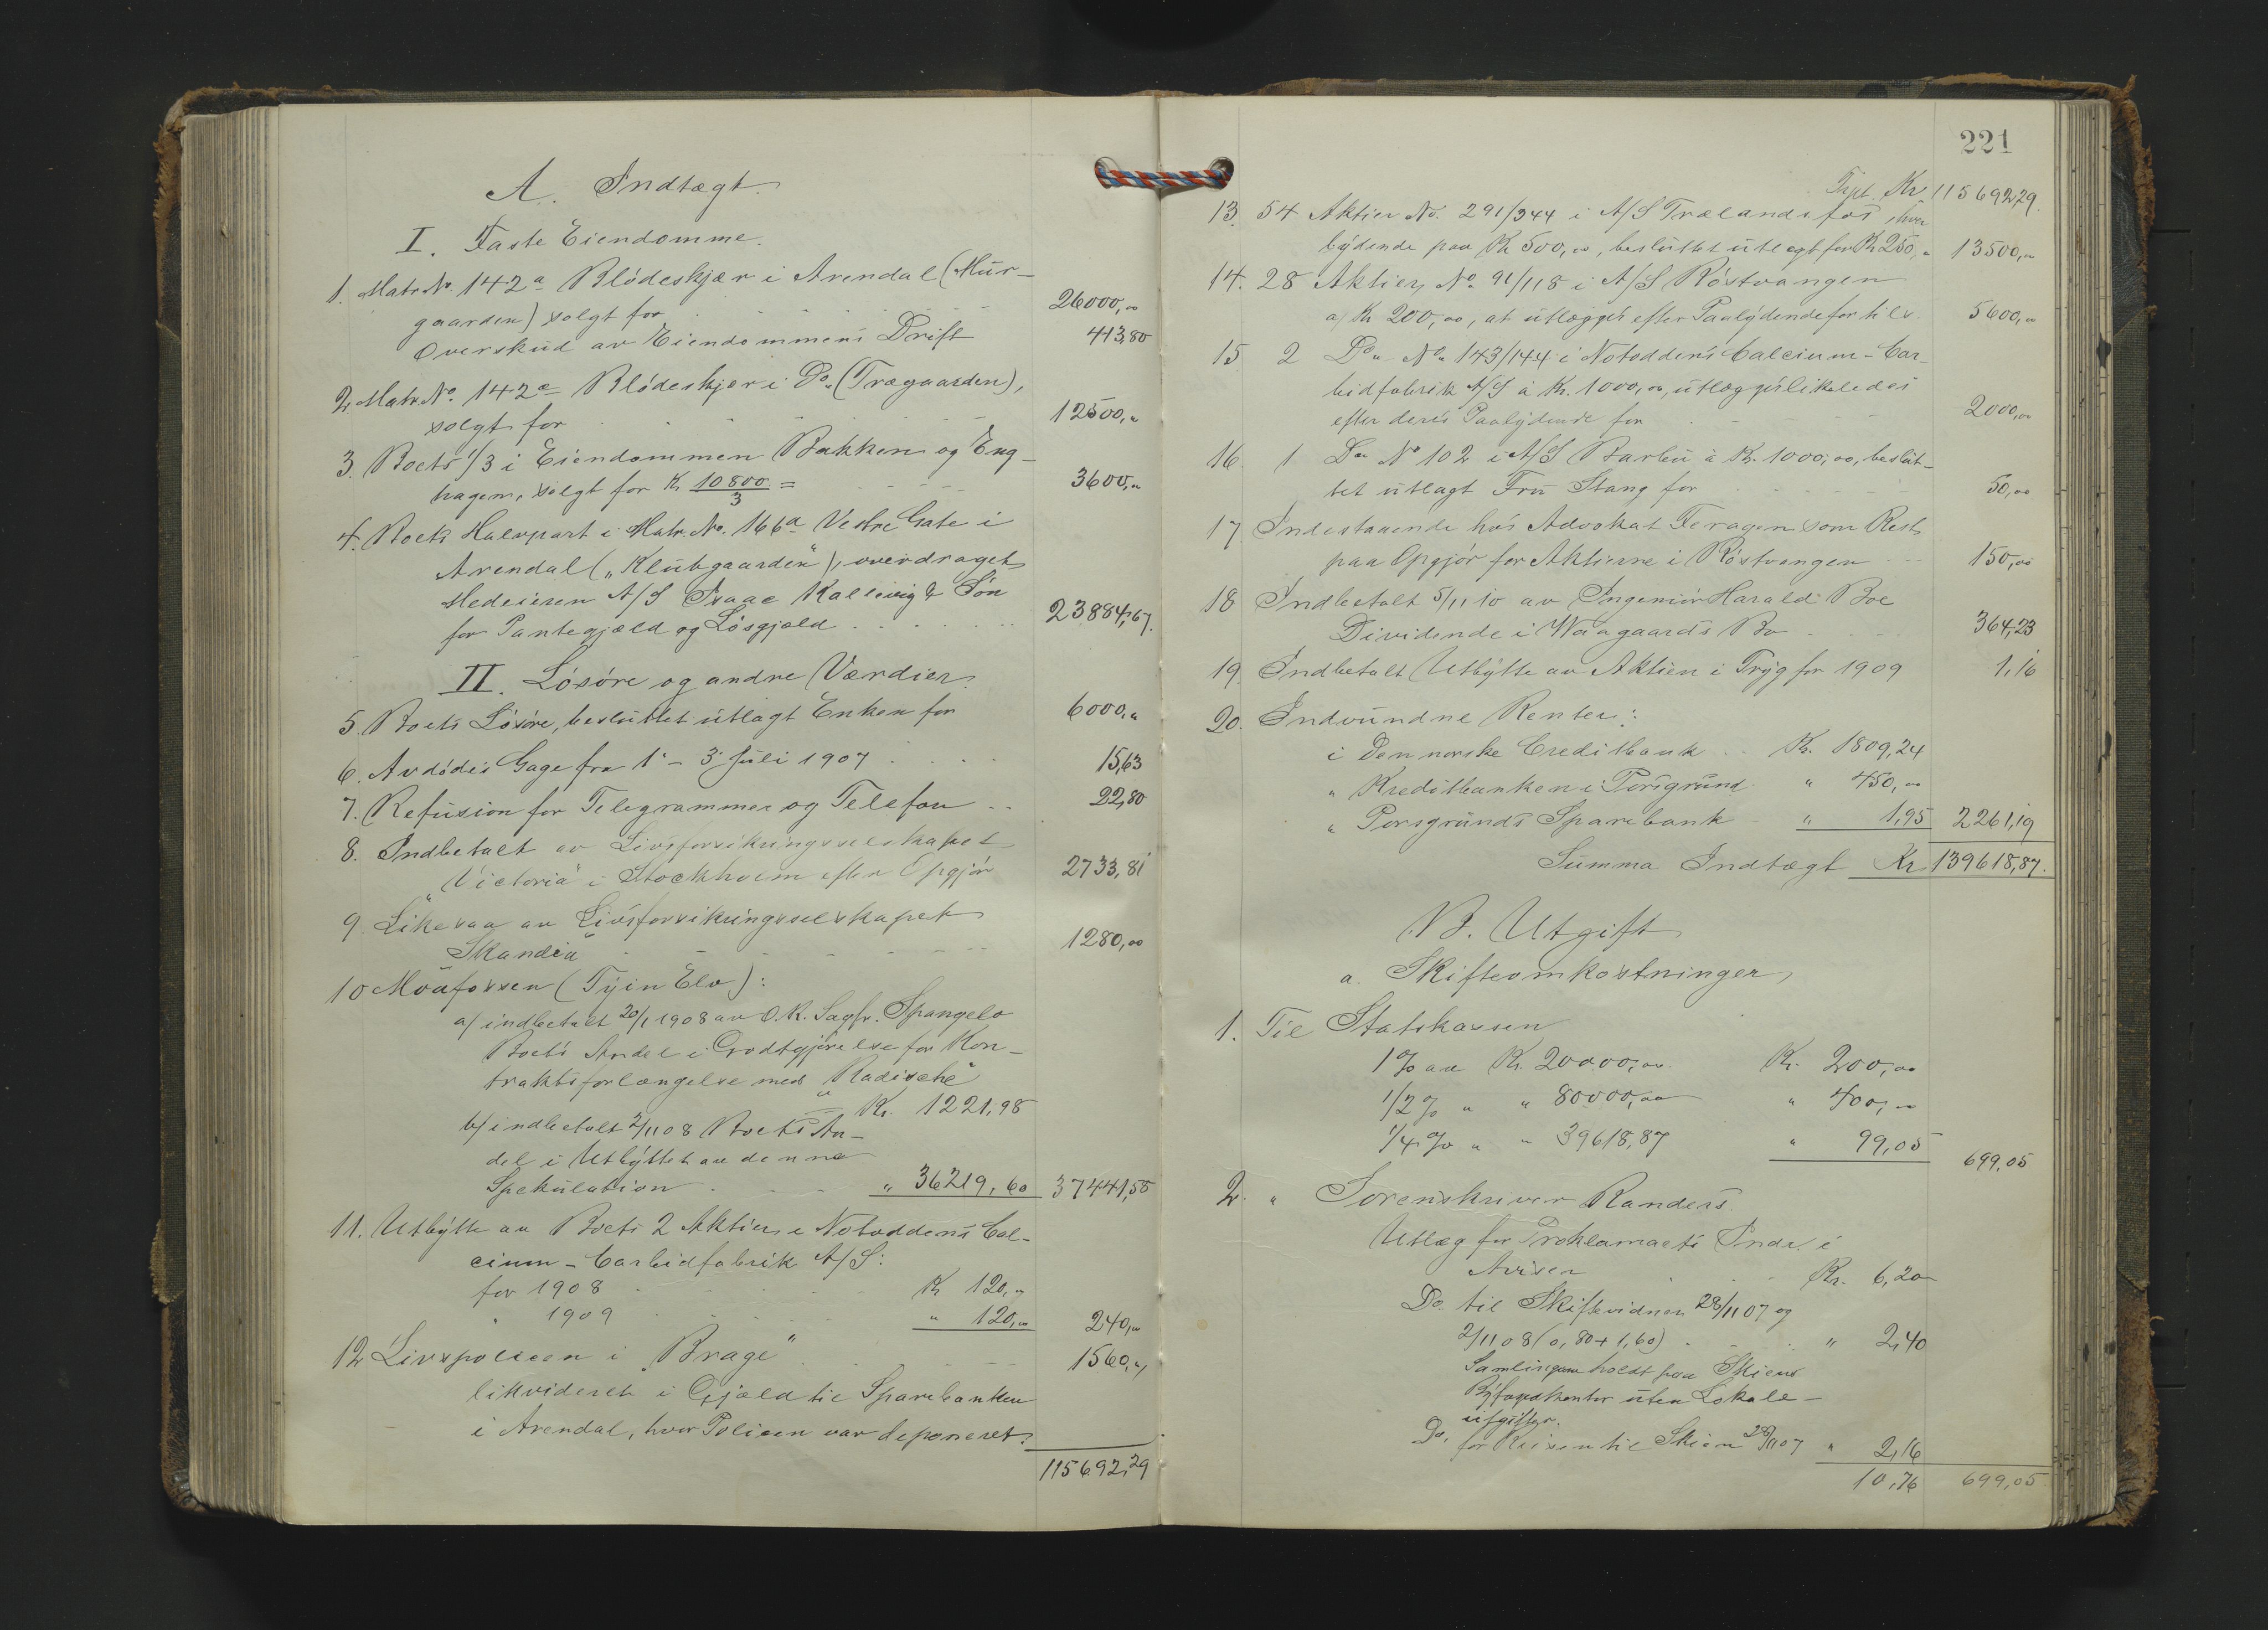 A. Indtægt.
I. Faste Eiendomme.
1. Matr. No. 142a Blødeskjær i Arendal (Mur-
gaarden) solgt for 26000,00
Overskud av Eiendommens Drift 413,80
2. Matr. No. 142e Blødeskjær i Do. (Trægaarden),
solgt for 12500,"
3. Boets 1/3 i Eiendommen Bakken og Eng-
hagen, solgt for Kr 10800/3 = 3600,"
4. Boets Halvpart i Matr. No. 166a Vestre Gate i
Arendal („Klubgaarden"), overdraget
Medeieren A/S Isaac Kallevig & Søn
for Pantegjæld og Løsgjæld 23884,67.
II. Løsøre og andre Værdier.
5. Boets Løsøre, besluttet utlagt Enken for 6000,"
6. Avdødes Gage fra 1. - 3. Juli 1907 15,63
7. Refusion for Telegrammer og Telefon 22,80
8. Indbetalt av Livsforsikringsselskapet
„Victoria" i Stockholm efter Opgjør 2733,81
9. Likesaa av Livsforsikringsselskapet
„Skandia" 1280,00
10 Moafossen (Tyin Elv):
a/ indbetalt 20/1 1908 av O.R. Sagfr. Spangelo
Boets Andel i Godtgjørelse for Kon-
traktsforlængelse med „Badische"
Kr. 1221,98
b/ indbetalt 2/11 08 Boets An-
del i Utbyttet av denne
Spekulation " 36219,60 37441,58
11. Utbytte av Boets 2 Aktier i Notoddens Cal-
cium-Carbidfabrik A/S:
for 1908 Kr 120,"
" 1909 " 120,00 240,00
12 Livspolicen i „Brage" 1560,"
likvideret i Gjæld til Sparebanken
i Arendal, hvor Policen var deponeret.
115692,29
221
Trpt. Kr 115692,29.
13. 54 Aktier No. 291/344 i A/S Trælandsfos, hver
lydende paa Kr 500,00, besluttet utlagt for Kr 250," 13500,00
14. 28 Aktier No. 91/118 i A/S Røstvangen
a/ Kr 200,00, at utlægges efter Paalydende for tils. 5600,00
15 2 Do. No. 143/144 i Notoddens Calcium-Car-
bidfabrik A/S à Kr. 1000,00, utlægges likeledes
efter deres Paalydende for 2000,00
16. 1 Do No 102 i A/S Barbu à Kr. 1000,00, beslut-
tet utlagt Fru Stang for 50,00
17 Indestaaende hos Advokat Feragen som Rest
paa Opgjør for Aktierne i Røstvangen 150,00
18 Indbetalt 5/11 10 av Ingeniør Harald Boe
Dividende i Waagaards Bo 364,23
19. Indbetalt Utbytte av Aktien i Tryg for 1909 1,16
20. Indvundne Renter:
i Den norske Creditbank Kr. 1809,24
" Kreditbanken i Porsgrund " 450,00
" Porsgrunds Sparebank " 1,95 2261,19
Summa Indtægt Kr 139618,87.
B. Utgift
a. Skifteomkostninger
1. Til Statskassen
1% av Kr. 20000,00 Kr. 200,00
1/2% " " 80000,00 " 400,00
1/4% " " 39618,87 " 99,05 699,05
2. " Sorenskriver Randers.
Utlæg for Proklamaets Indr. i
Aviser Kr. 6,20
Do. til Skiftevidner 28/11 07 og
2/11 08 (0,80 + 1,60) " 2,40
Samlingen holdt paa Skiens
Byfogedkontor uten Lokale-
utgifter.
Do. for Reisen til Skien 28/11 07 " 2,16
10,76 699,05